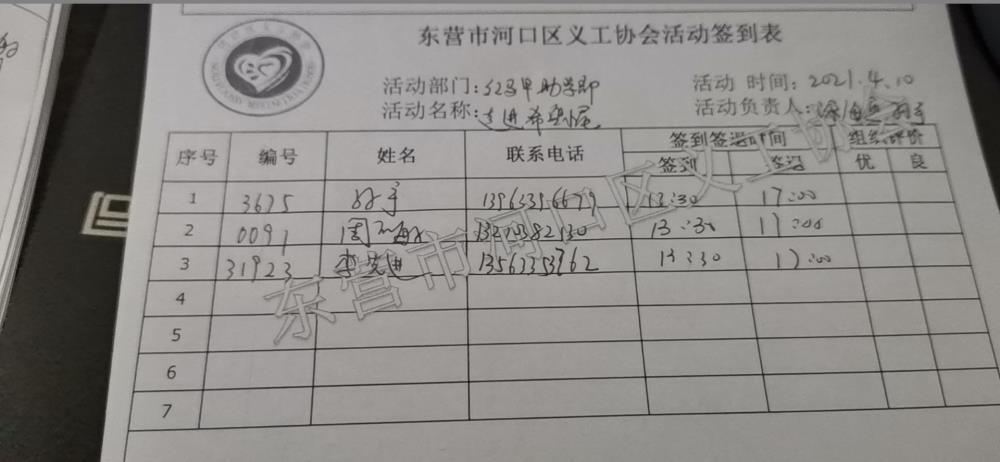 东营市河口区义工协会活动签到表
活动部门: 助学部 活动 时间: 2021.4.10
活动名称: 走进希望小屋 活动负责人:
序号 编号 姓名 联系电话 签到签退时间 组织评价
签到 签退 优 良
1 3675 13:30 17:00
2 0091 13:30 17:00
3 31923 李先进 13563353762 13:30 17:00
4
5
6
7
东营市河口区义工协会